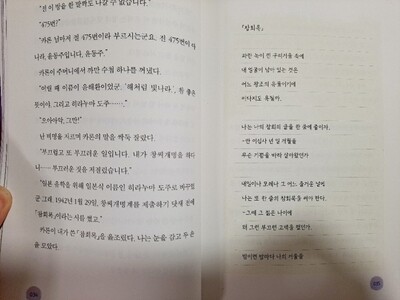 "전 이 정을 한 발짝도 나갈 수 없습니다."
"475번?"
"카론 님마저 절 475번이라 부르시는군요. 전 475번이 아
니라, 윤동주입니다, 윤동주."
카론이 주머니에서 까만 수첩 하나를 꺼냈다.
"어릴 때 이름이 윤해환이었군. '해처럼 빛나라.', 참 좋은
뜻이야. 그리고 히라누마 도주……."
"으아아악, 그만!"
난 비명을 지르며 카론의 말을 싹둑 잘랐다.
"부끄럽고 또 부끄러운 일입니다. 내가 창씨개명을 하다
니…… 부끄러운 짓을 저질렀습니다."
"일본 유학을 위해 일본식 이름인 히라누마 도주로 바꾸었
군그래. 1942년 1월 29일, 창씨개명계를 제출하기 닷새 전에
「참회록」이라는 시를 썼고."
카론이 내가 쓴 「참회록」을 읊조렸다. 나는 눈을 감고 두 손
을 모았다.
「참회록」
파란 녹이 낀 구리거울 속에
내 얼굴이 남아 있는 것은
어느 왕조의 유물이기에
이다지도 욕될까.
나는 나의 참회의 글을 한 줄에 줄이자.
─만 이십사 년 일 개월을
무슨 기쁨을 바라 살아왔던가
내일이나 모레나 그 어느 즐거운 날에
나는 또 한 줄의 참회록을 써야 한다.
─그때 그 젊은 나이에
왜 그런 부끄런 고백을 했던가.
밤이면 밤마다 나의 거울을